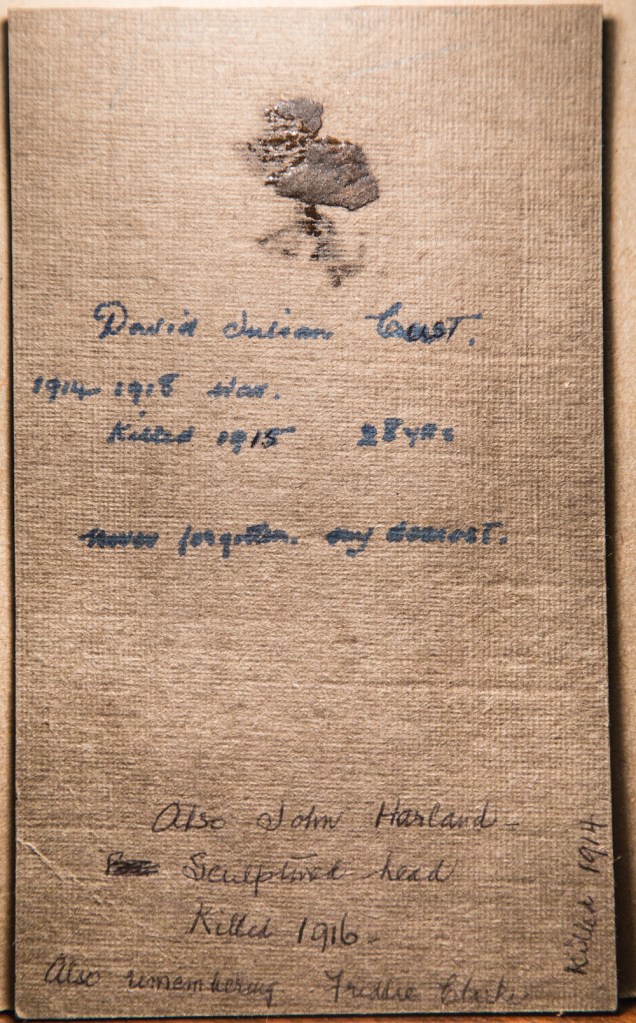 David Julian Cust.
1914-1918 War.
Killed 1915 28 yrs
never forgotten. my dearest.
Also John Harland -
Sculptured head
Killed 1916 -
Also remembering Freddie Clarke
Killed 1914